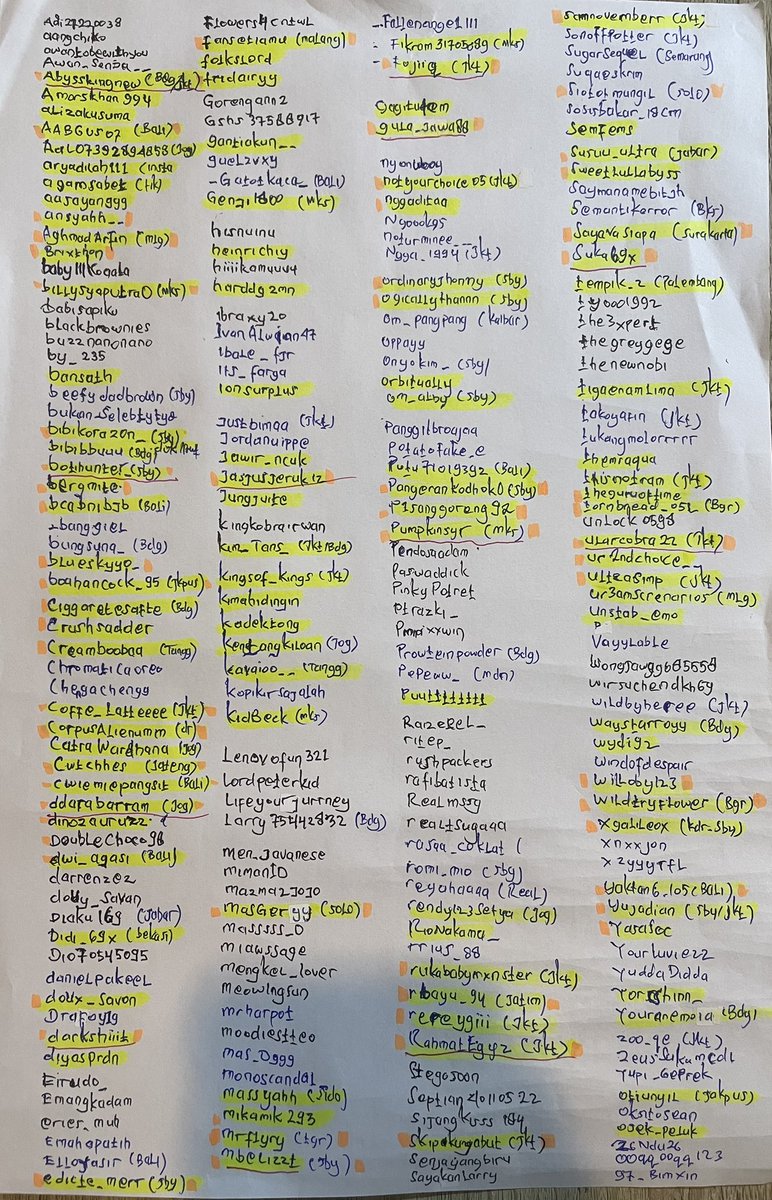 Adi27220038
aangchiko
avantobewithyou
Awan_Senba__
Abysskingnew (Bdg/Jkt)
Amorskhan 994
alizakusuma
AABGUS07 (Bali)
Adl07392894858 (Jog)
aryadilah111 (insta
agamsabet (tik)
aasayanggg
ansyahh__
Aghmad Arfin (mlg)
Brixthon
baby III Kogala
billysyaputra0 (mks)
babisapiku
blackbrownies
buzznanonano
by_235
bansath
beefydadbrown (Sby)
bukan_Selebtytyd
bibikorazon_ (Sby)
bibibbuuu (Bdg)
bothunter (Sby)
bergmite
bcabnibjb (Bali)
_banggiel
bungsuna_ (Bdg)
blueskyyp_
boahancock_95 (jkpus)
Ciggaretesafte (Bdg)
Crushsadder
Creamboobaa (Tangg)
Chromaticaoreo
Chengachengy
Coffe_Latteeee (Jkt)
CorpusAlienumm (dr)
Catra Wardhana (Jog)
Cwtchhes (Jateng)
cwiemiepangsit (Bali)
ddarabarram (Jog)
dinozauruzz
DoubleChoco98
dwi_agasi (Bali)
darrenzez
dolly_Savan
Diaku 169 (Jabar)
Didi_69x (bekasi)
Dio70545095
danielpakeel
doux_savon
Drafoy19
darkshiiit
diyasprdn
Eirudo_
Emangkadam
eries_muh
Emahapatih
Ellgyasir (Bali)
edicte_merr (Sby)
Flowers4cntwl
fansetiamu (malang)
folkslord
fridairyy
Gorengann2
Gshs37588917
gantiakun__
guelzvxy
_Gatotkaca_ (Bali)
Genzi1800 (mks)
hisnuinu
heinrichiy
hiiiikamuuu4
harddgzmn
ibraxy20
Ivan Alvian47
ibale_fjr
its_farga
ionsurplus
Justbimaa (Jkt)
Jordanuippe
Jawir_ncuk
Jasjusjeruk12
Jungjuite
kingkobrairwan
kim_Tans_ (Jkt/Bdg)
kingsof_kings (Jkt)
kimahidingin
kadektong
kentangkiloan (Jog)
kavaioo__ (Tangg)
kopikirsajalah
KidBeck (mks)
Lenovofun321
Lordpeterkid
Lifeyourjurney
Larry75442832 (Bdg)
men_Javanese
mimanID
mazmazJOJO
masGeryy (SOLO)
Masssss_O
miawssage
mengkel_lover
meowingsun
mrharpot
moodiestteo
mas_Oggg
monoscandal
massyahh (Sido)
mikamik 293
mrflyry (tgr)
mbelizzt (Sby)
_Fallenangel111
Fikram31705089 (Mks)
fujiiq (Jkt)
Gagituhem
gula_jawa88
nyonuboy
notyourchoice05 (Jkt)
nggaditaa
Ngoookgs
noturminee_
Ngga_1994 (Jkt)
ordinaryjhonny (Sby)
ogicallythannn (Sby)
om_pangpang (kalbar)
oppayy
Onyokim_ (Sby)
orbitually
om_alby (Sby)
Panggilbrojaa
Potatofake_e
Putu71019392 (Bali)
PangeranKodhok0 (Sby)
P1sanggoreng92
Pumpkinsyr (mks)
Pendosaadam
Paswaddick
Pinky Potret
Ptrazki_
Pmpixxwin
Prouteinpowder (Bdg)
Pepeww_ (mdn)
Puutttttttt
Razezel_
ritep_
rushpackers
rafibatista
Realmssg
realtsugaaa
rosaa_coklat (
romi_mio (Sby)
reyohaaaa (Real)
rendy123setya (Jog)
RioNakama_
rrius_88
rukababymxnster (Jkt)
rbayu_94 (Jatim)
repeygiii (Jkt)
RahmatEgyz (Jkt)
Stegosoon
Saptian20110522
Sijangkuss184
Skipakungabut (Jkt)
Senjayangbiru
Sayakanlarry
samnovemberr (Jkt)
Sonoffpotter (Jkt)
SugarSequel (Semarang)
Sugaeskrim
Siotoimungil (SOLO)
Sosisbakar_18cm
Semfems
Susuu_ultra (Jabar)
Sweetlullabyss
Saymanamebitjh
Semantikerror (Bks)
Sayavasiapa (Surakarta)
Suka69x
tempik_2 (Palembang)
tyooo1992
the3xpert
thegreygege
thenewnobi
tigaenamlima (Jkt)
tokoyafin (Jkt)
tukangmolorrrrr
themraqua
thisnotram (Jkt)
theguruottime
tornbnead_051 (Bgr)
Unlock0598
ularcobra22 (Jkt)
ur2ndchoice__
ultrasimp (Jkt)
ur3amscrenarios (mlg)
Unstab_emo
P
Vayylable
Wongjawgg685558
wirsuchendkh6y
wildbyheree (Jkt)
waystarroyy (Bdg)
wydigz
windofdespair
Willoby123
Wildtryflower (Bgr)
xgalileox (kdr-Sby)
xnxxjon
xzyyyrfl
Yaktan6_105 (Bali)
Yujadian (Sby/Jkt)
Yasafec
Yourluvie22
YuddaDidda
Yorshinn_
Youranemoia (Bdg)
200_qe (Jkt)
Zeusukumcdi
Yupi_Geprek
Otiunyil (Jakpus)
Okntosean
ojek_peluk
ZSNdu26
00qq00qq123
97_Bimxin